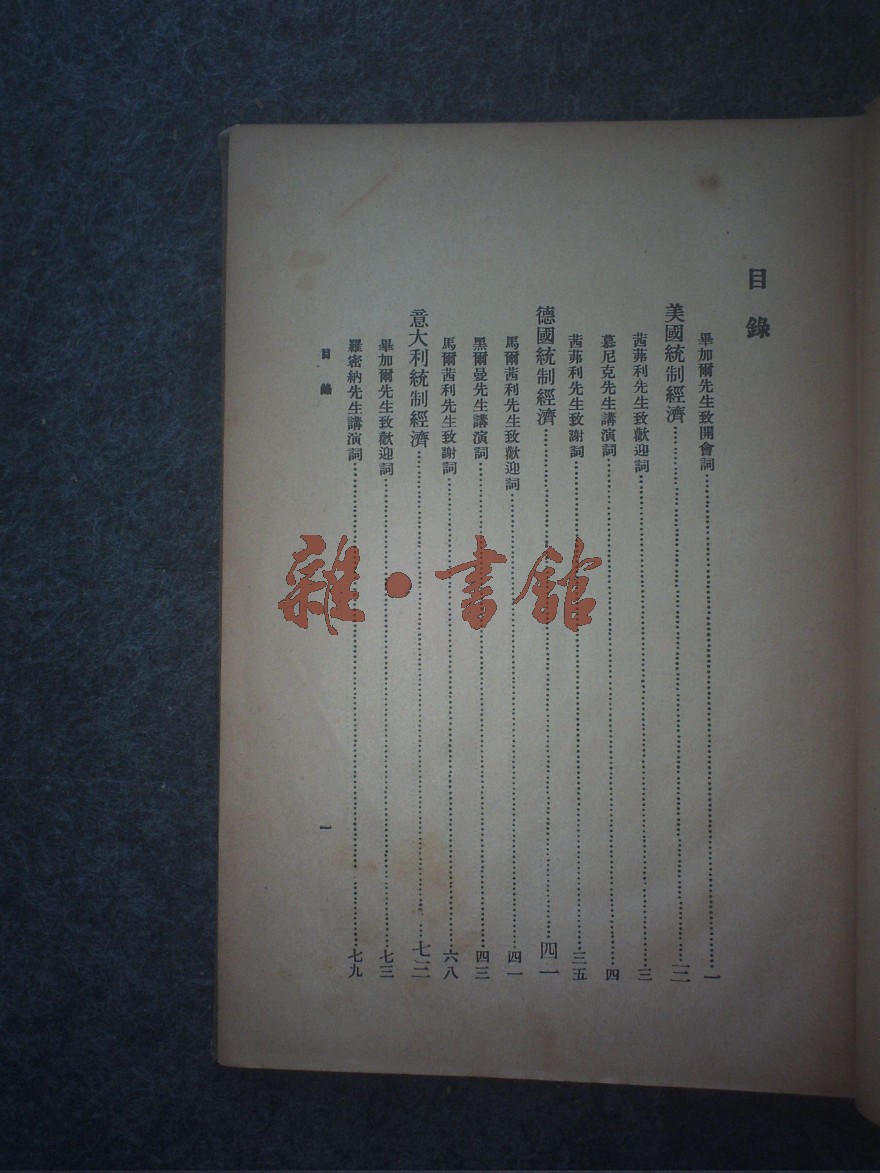 目錄
畢加爾先生致開會詞……一
美國統制經濟……三
茜茀利先生致歡迎詞……三
慕尼克先生講演詞……四
茜茀利先生致謝詞……三五
德國統制經濟……四一
馬爾茜利先生致歡迎詞……四一
黑爾曼先生講演詞……四三
馬爾茜利先生致謝詞……六八
意大利統制經濟……七三
畢加爾先生致歡迎詞……七三
羅密納先生講演詞……七九
目錄 一
雜·書館